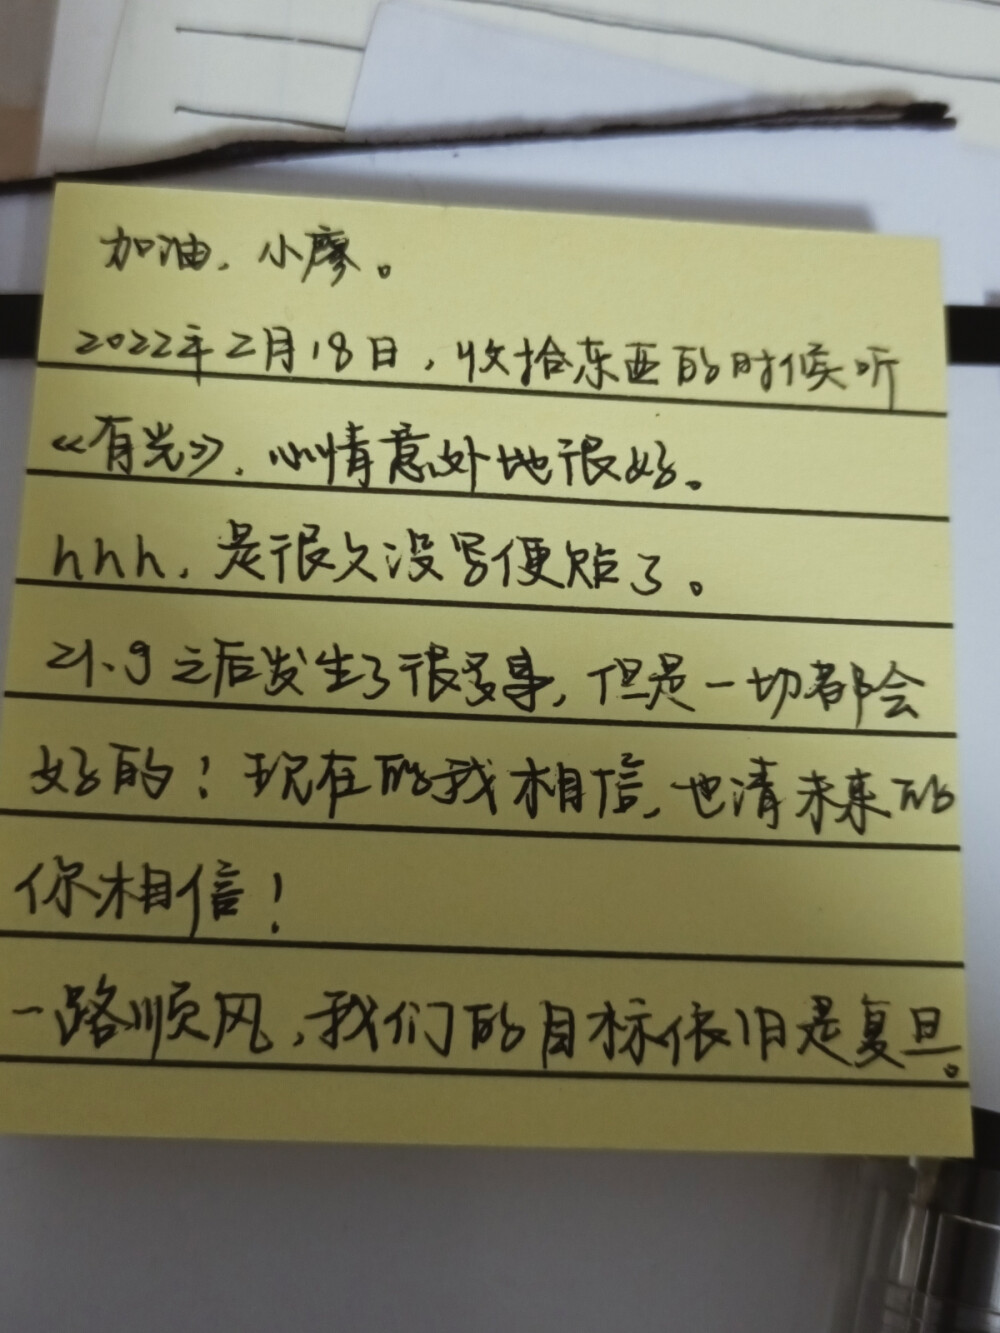 加油，小廖。
2022年2月18日，收拾东西的时候听
《有光》，心情意外地很好。
hhh，是很久没写便贴了。
21.9之后发生了很多事，但是一切都会
好的！现在的我相信，也请未来的
你相信！
一路顺风，我们的目标依旧是复旦。